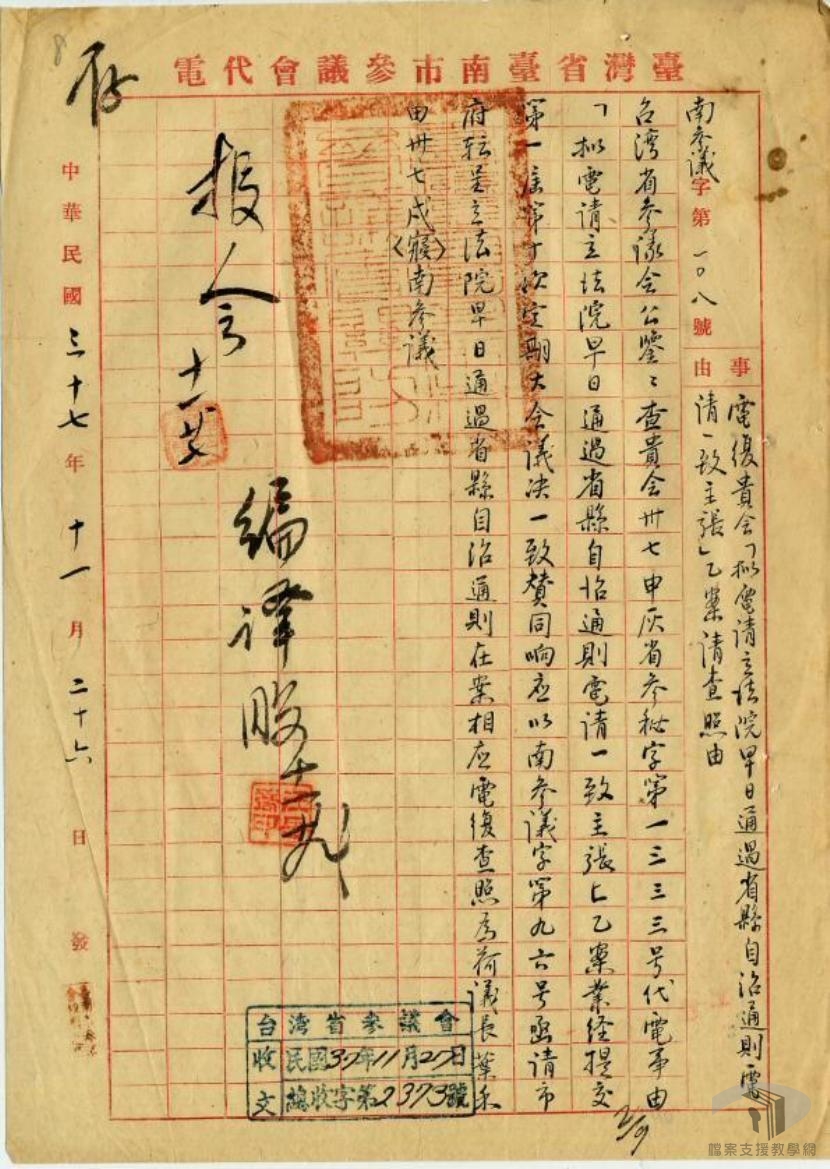 臺灣省臺南市參議會代電
南参議字第一〇八號
事由
電復貴会「拟電請立法院早日通過省縣自治通則電
請一致主張」乙案請查照由
台湾省参議会公鑒：查貴会卅七申灰省参秘字第一三三三号代電事由
「拟電請立法院早日通過省縣自治通則電請一致主張」乙案業経提交
第一届第十次定期大会議决一致賛同响应以南参議字第九六号函請市
府転呈立法院早日通過省縣自治通則在案相应電復查照為荷議長葉禾
田卅七戍（寢）南参議
報会
十一廿七
編譯股
存
中華民國三十七年十一月二十六日發
台湾省参議會
收文
民國37年11月27日
總收字第2373號
8
檔案支援教學網